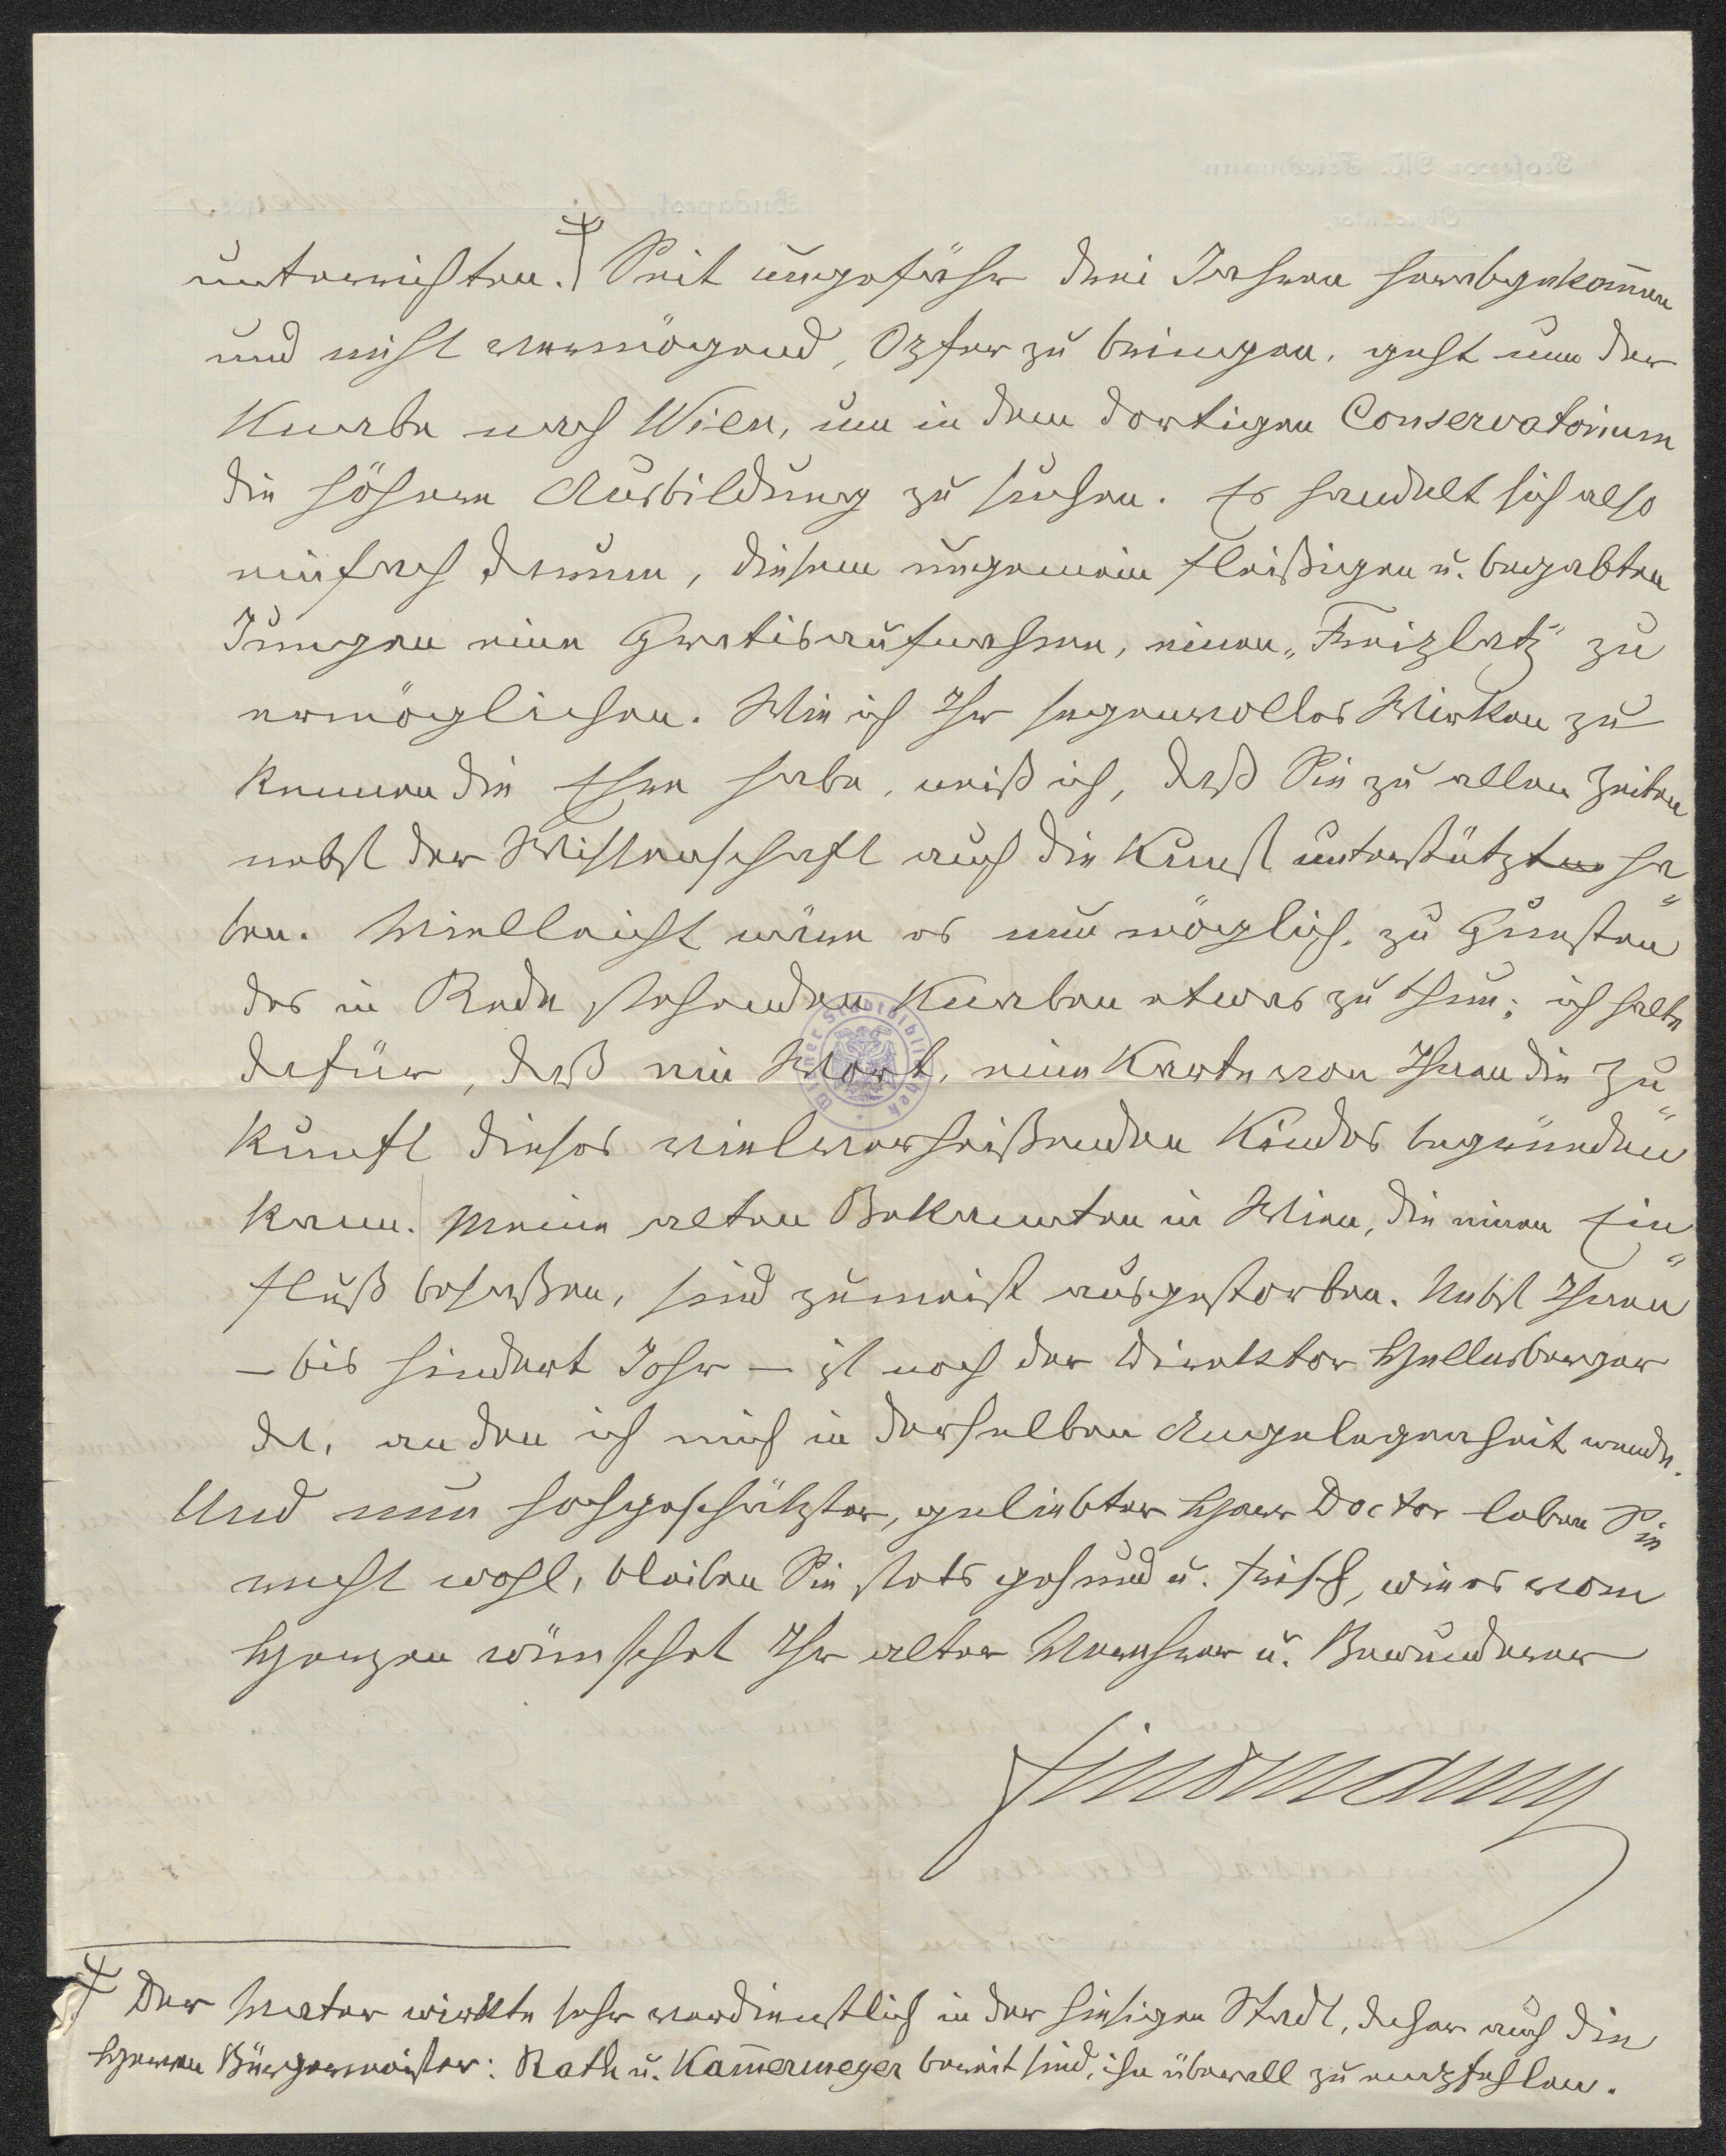 unterrichten.‡) Seit ungefähr drei Jahren herabgekom̄en
und nicht vermögend, Opfer zu bringen, geht nun der
Knabe nach Wien, um in dem dortigen Conservatorium
die höhere Ausbildung zu suchen. Es handelt sich also
einfach darum, diesem ungemein fleißigen u. begabten
Jungen eine Gratisaufnahme, einen „Freiplatz" zu
ermöglichen. Wie ich Ihr segenvolles Wirken zu
kennen die Ehre habe, weiß ich, daß Sie zu allen Zeiten
nebst der Wissenschaft auch die Kunst unterstützt ha„
ben. Vielleicht wäre es nun möglich, zu Gunsten
des in Rede stehenden Knaben etwas zu thun; ich halte
dafür, daß ein Wort, eine Karte von Ihnen die Zu„
kunft dieses vielverheißenden Kindes begründen
kann. Meine alten Bekannten in Wien, die einen Ein„
fluß besaßen, sind zumeist ausgestorben. Nebst Ihnen
– bis hundert Johr – ist noch der Direktor Hellesberger
da, an den ich mich in derselben Angelegenheit wende.
Und nun hochgeschätzter, geliebter Herr Doctor leben Sie
recht wohl, bleiben Sie stets gesund u. frisch, wie es vom
Herzen wünschet Ihr alter Verehrer u. Bewunderer
Friedmann
‡ Der Vater wirkte sehr verdienstlich in der hiesigen Stadt, daher auch die
Herren Bürgermeister: Rath u. Kam̄ermeyer bereit sind, ihn überall zu empfehlen.
Wiener Stadtbibliothek
Professor M. Friedmann
Budapest,